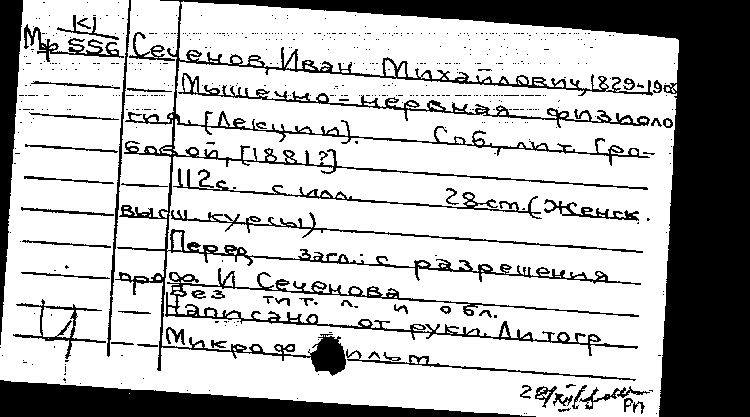 КI
Мф 556 Сеченов, Иван Михайлович, 1829-1905
Мышечно-нервная физиоло
гия. [Лекции]. Спб., лит. Гро-
бовой, [1881?]
112с. с илл. 28 см. (Женск.
высш. курсы).
Перед загл.: с разрешения
проф. И Сеченова
Без тит. л. и обл.
Написано от руки. Литогр.
Микрофильм.
Ч
РП